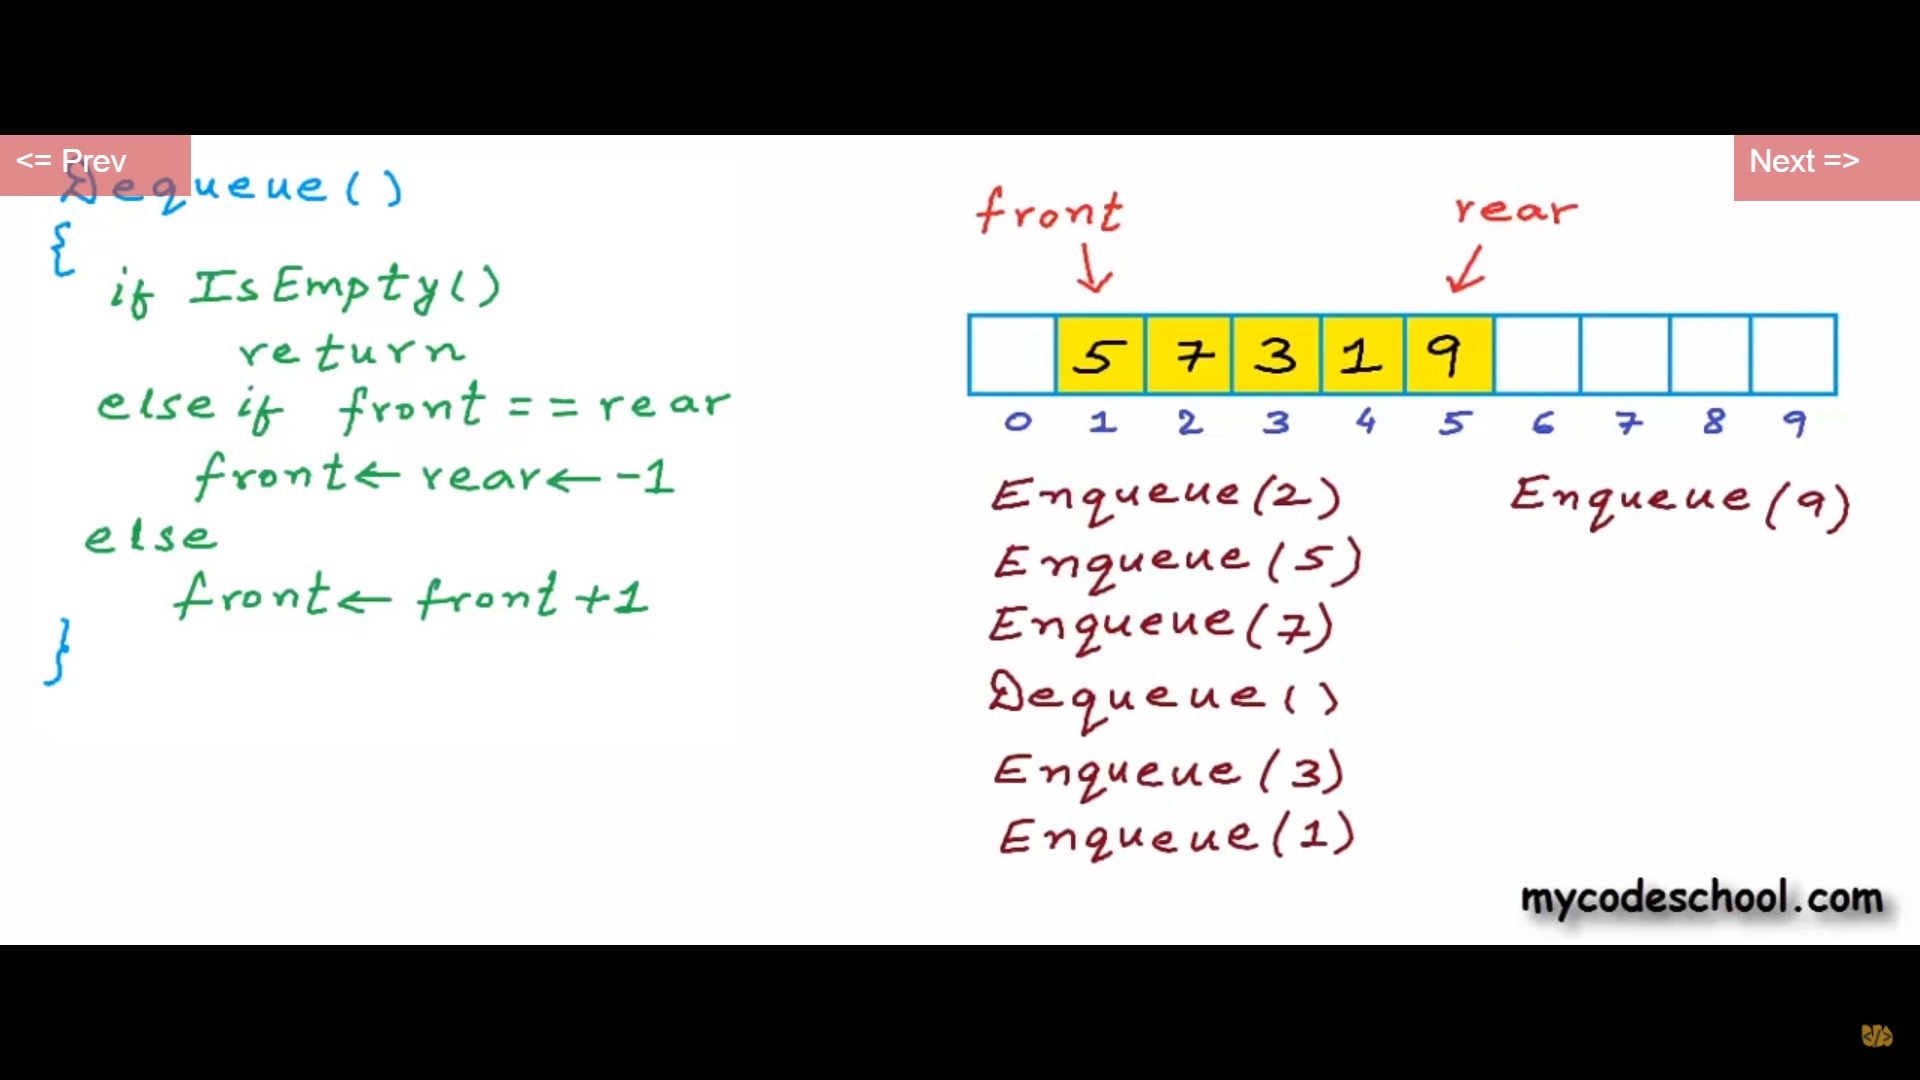 <= Prev
Next =>
Dequeue()
{
if IsEmpty()
return
else if front == rear
front ← rear ← -1
else
front ← front + 1
}
front
rear
5 7 3 1 9
0 1 2 3 4 5 6 7 8 9
Enqueue(2)
Enqueue(5)
Enqueue(7)
Dequeue()
Enqueue(3)
Enqueue(1)
Enqueue(9)
mycodeschool.com